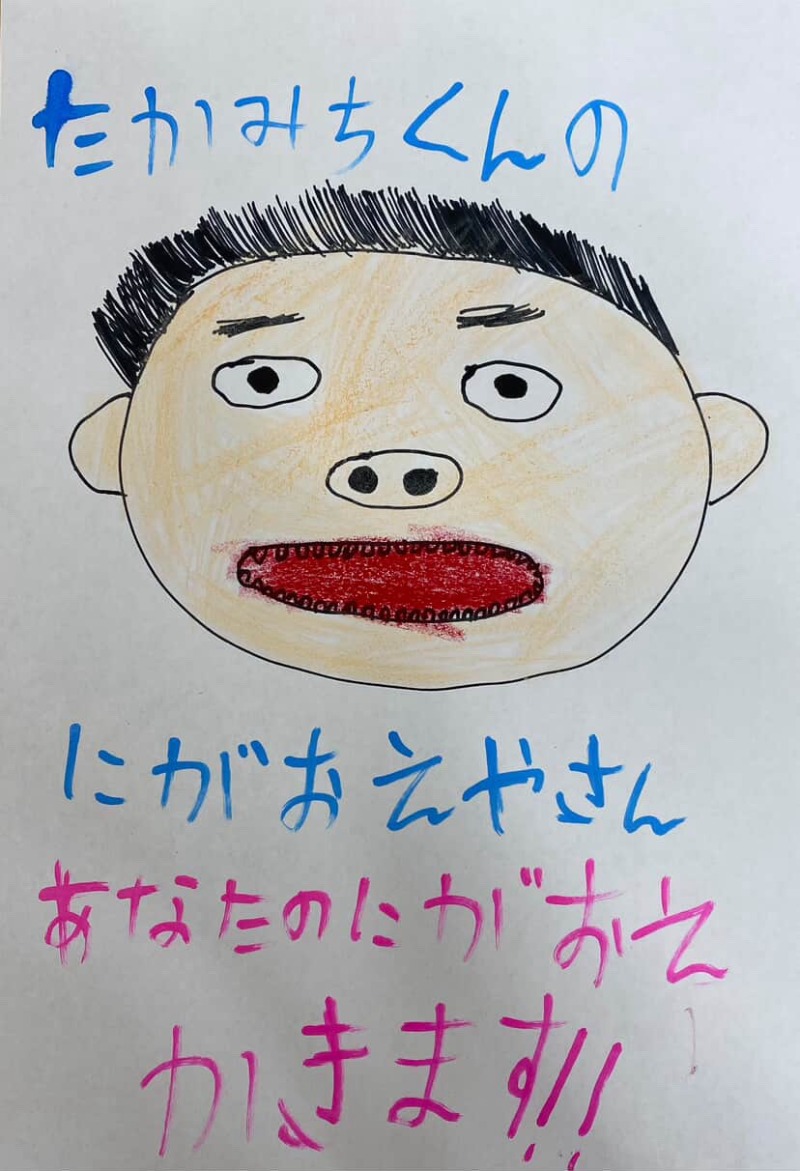 たかみちくんの
にがおえやさん
あなたのにがおえ
かきます!!